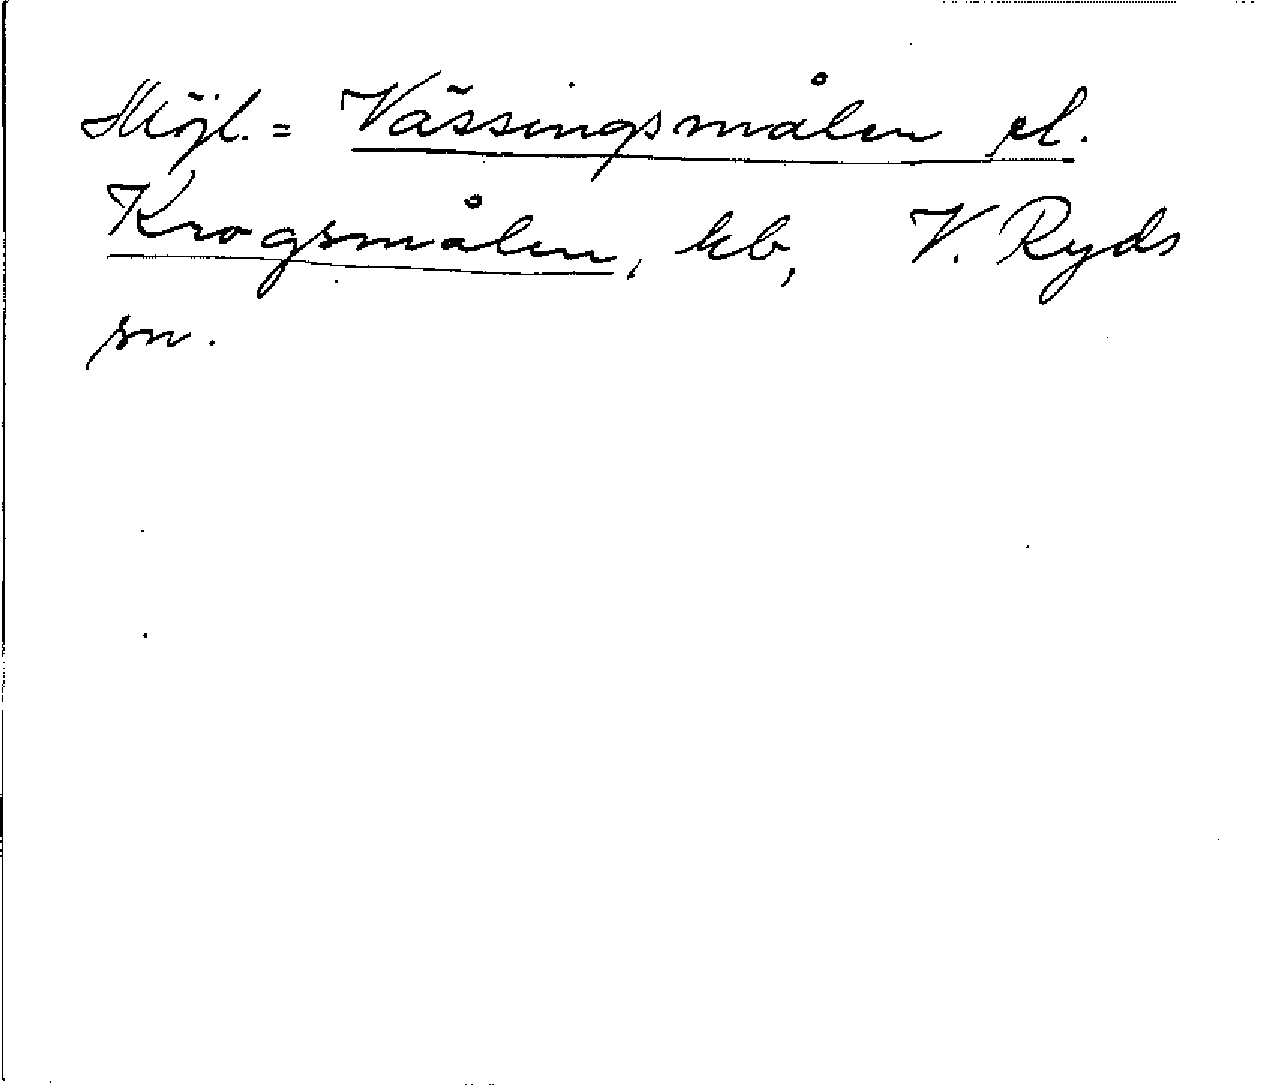 Möjl. = Vässingsmålen el.
Krogsmålen, kb, V. Ryds
sn.